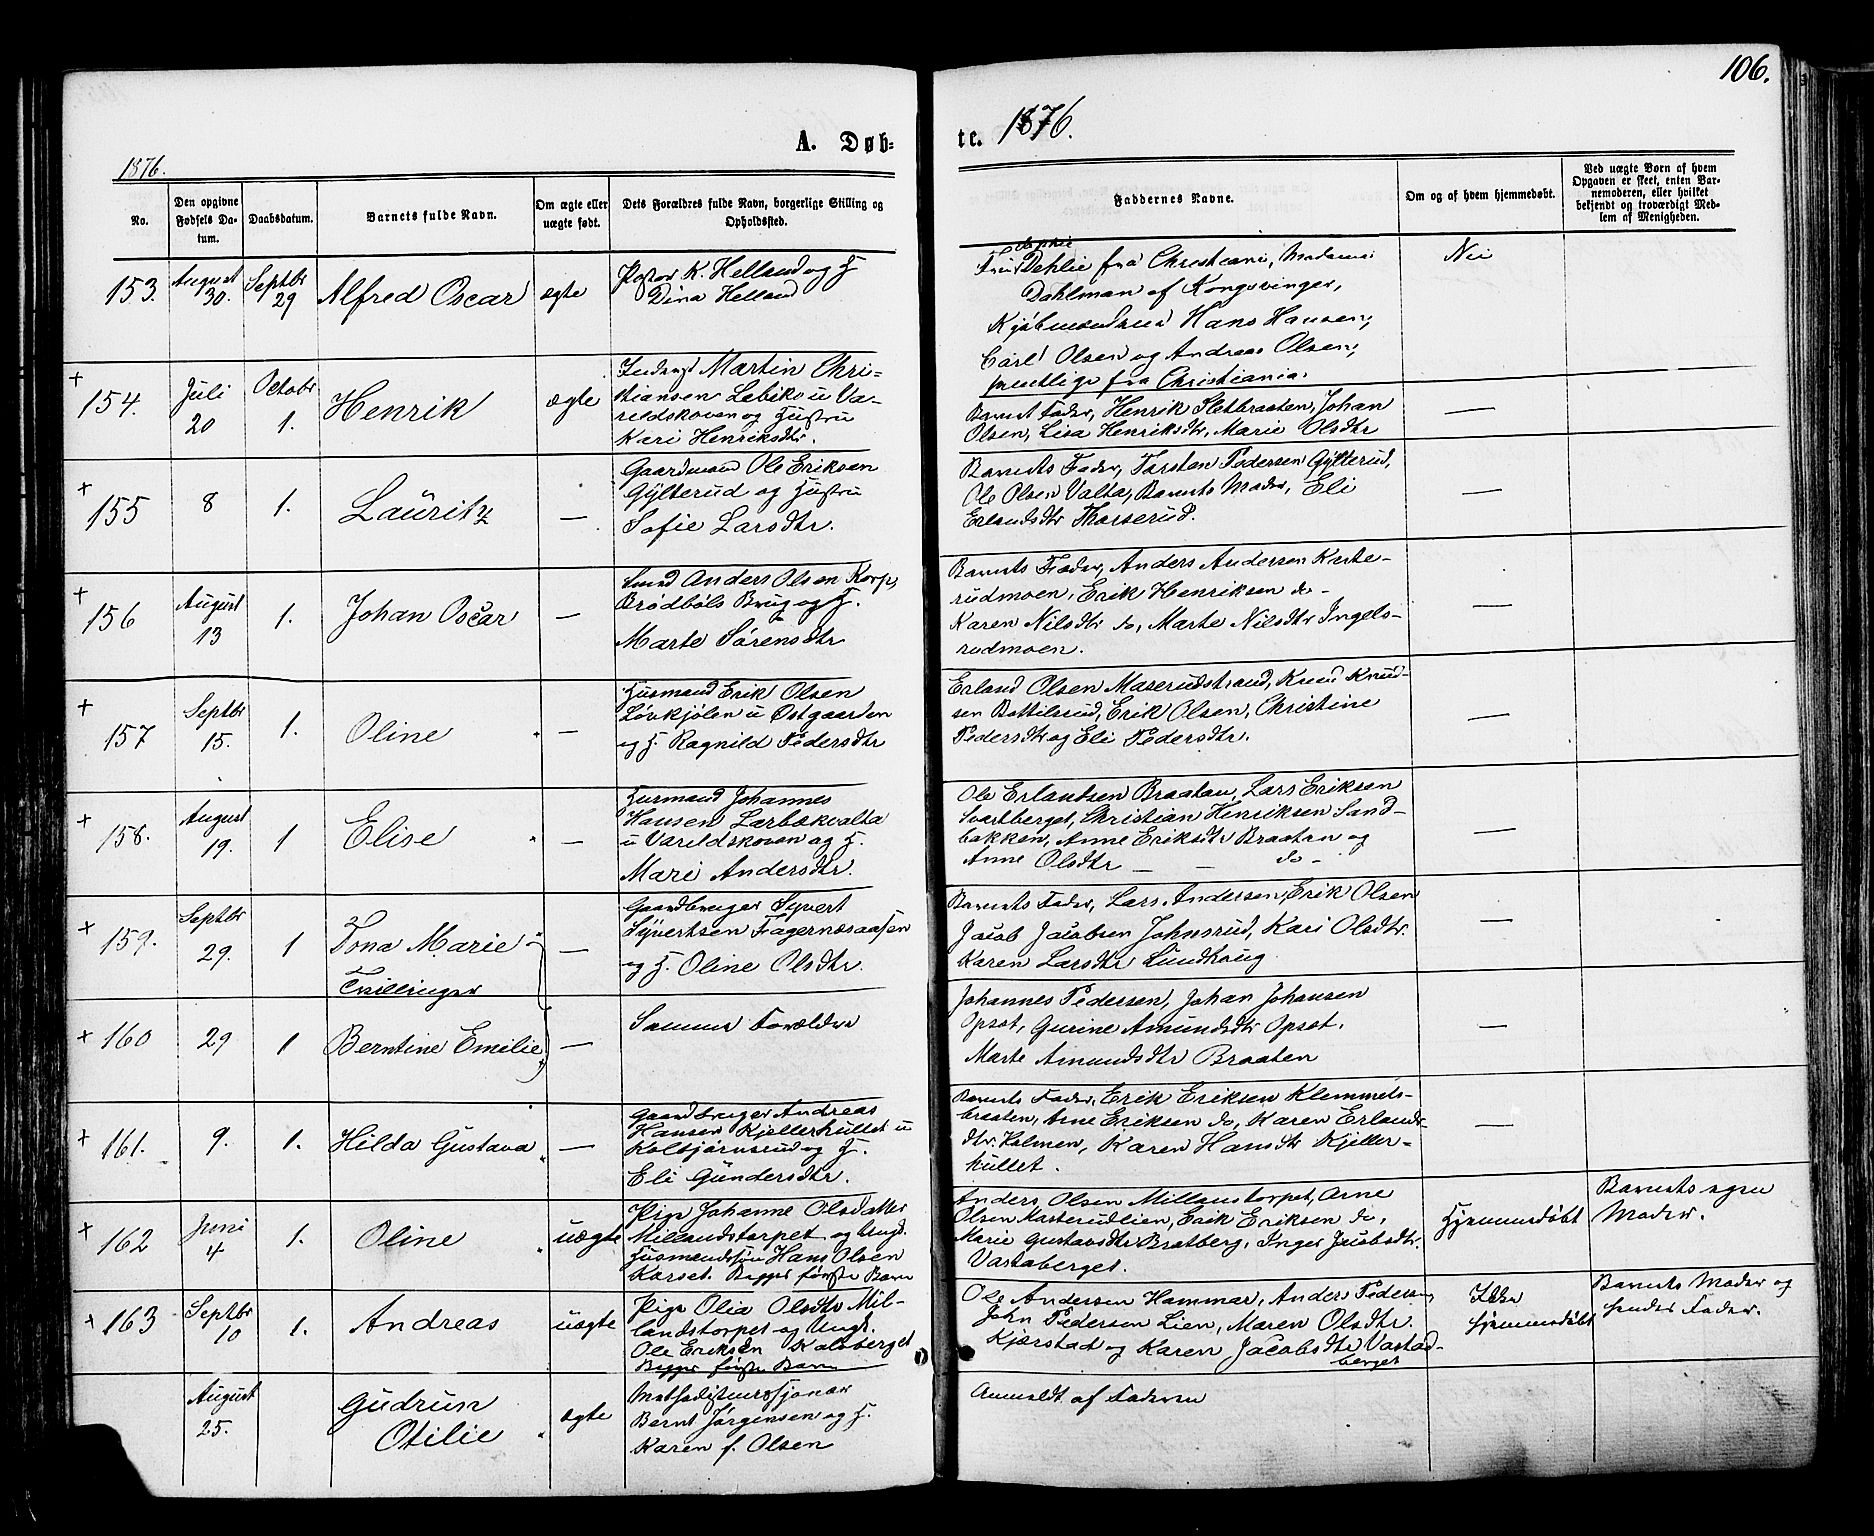 106.
A. Døb=
te. 1876.
1876.
No.
Den opgivne
Fødsels Da-
tum.
Daabsdatum.
Barnets fulde Navn.
Om ægte eller
uægte født.
Dets Forældres fulde Navn, borgerlige Stilling og
Opholdssted.
Faddernes Navne.
Om og af hvem hjemmedøbt.
Ved uægte Børn af hvem
Opgaven er skeet, enten Bar-
nemoderen, eller hvilket
bekjendt og troværdigt Med-
lem af Menigheden.
153.
August
30.
Septbr
29
Alfred Oscar
ægte
Pastor K. Helland og H
Dina Helland
Fru Dehlie fra Christiania, Madame
Dahlman af Kongsvinger,
Kjøbmændene Hans Hansen,
Carl Olsen og Andreas Olsen,
samtlige fra Christiania.
Nei
+ 154.
Juli
20
Octobr
1.
Henrik
ægte
Martin Chri-
stiansen Lebiko u Va-
rildskoven og Hustru
Kari Henriksdtr.
Barnets Fader, Henrik Sletbraaten, Johan
Olsen, Lisa Henriksdtr, Marie Olsdtr
—
+ 155
8
1.
Lauritz
—
Gaardmand Ole Eriksen
Gylterud og Hustru
Sofie Larsdtr.
Barnets Fader, Torsten Pedersen Gylterud,
Ole Olsen Valta, Barnets Moder, Eli
Erlandsdtr Thorserud.
—
+ 156
August
13
1.
Johan Oscar
—
Smed Anders Olsen Korp,
Brødbøls Brug og H.
Marte Sørensdtr
Barnets Fader, Anders Andersen Kirke-
rudmoen, Erik Henriksen do -
Karen Nilsdtr do, Marte Nilsdtr Ingels-
rudmoen.
—
+ 157
Septbr
15.
1.
Oline
—
Husmand Erik Olsen
Løvkjølen u Østgaarden
og H. Ragnild Pedersdtr
Erland Olsen Maserudstrand, Knud Knud-
sen Bottilsrud, Erik Olsen, Christine
Pedersdtr og Eli Pedersdtr.
—
+ 158.
August
19.
1
Elise
—
Husmand Johannes
Hansen Larbækvalta
u Varildskoven og H.
Mari Andersdtr.
Ole Erlantsen Braaten, Lars Eriksen
Svartberget, Christian Henriksen Sand-
bakken, Anne Eriksdtr Braaten og
Anne Olsdtr — — do -
—
+ 159.
Septbr
29.
1
Tona Marie
Tvillinger
—
Gaardbruger Syvert
Syvertsen Fagernæsaasen
og H. Oline Olsdtr.
Barnets Fader, Lars Andersen, Erik Olsen
Jacob Jacobsen Johnsrud, Kari Olsdtr.
Karen Larsdtr Lundhoug
—
+ 160
29
1
Berntine Emilie
—
Samme Forældre
Johannes Pedersen, Johan Johansen
Opset, Gurine Amundsdtr Opset.
Marte Amundsdtr Braaten
—
+ 161.
9.
1.
Hilda Gustava
—
Gaardbruger Andreas
Hansen Kjellerhullet u
Kolbjørnsrud og H.
Eli Gundersdtr.
Barnets Fader, Erik Eriksen Klemmets-
braaten, Arne Eriksen do, Karen Erlands
dtr. Holmen, Karen Hansdtr Kjeller-
hullet.
—
+ 162
Juni
4
1.
Oline
uægte
Pige Johanne Olsdatter
Millandstorpet og Ungk.
Husmandssøn Hans Olsen
Karset. Begges første Barn
Anders Olsen Millanstorpet, Arne
Olsen Masterudlien, Erik Eriksen do,
Marie Gustavsdtr Bratberg, Inger Jacobsdtr.
Vastaberget.
Hjemmedøbt
Barnets egen
Moder.
+ 163
Septbr
10
1.
Andreas
uægte
Pige Olia Olsdtr Mil-
landstorpet og Ungk.
Ole Eriksen Kalsberget
Begges første Barn
Ole Andersen Hammar, Anders Pedersen
John Pedersen Lien, Maren Olsdtr.
Kjærstad og Karen Jacobsdtr Vastad-
berget
Ikke
hjemmedøbt
Barnets Moder og
Fader.
August
25.
Gudrun
Otilie
ægte
Methodistmissionær
Bernt Jørgensen og H.
Karen f. Olsen
Anmeldt af Faderen